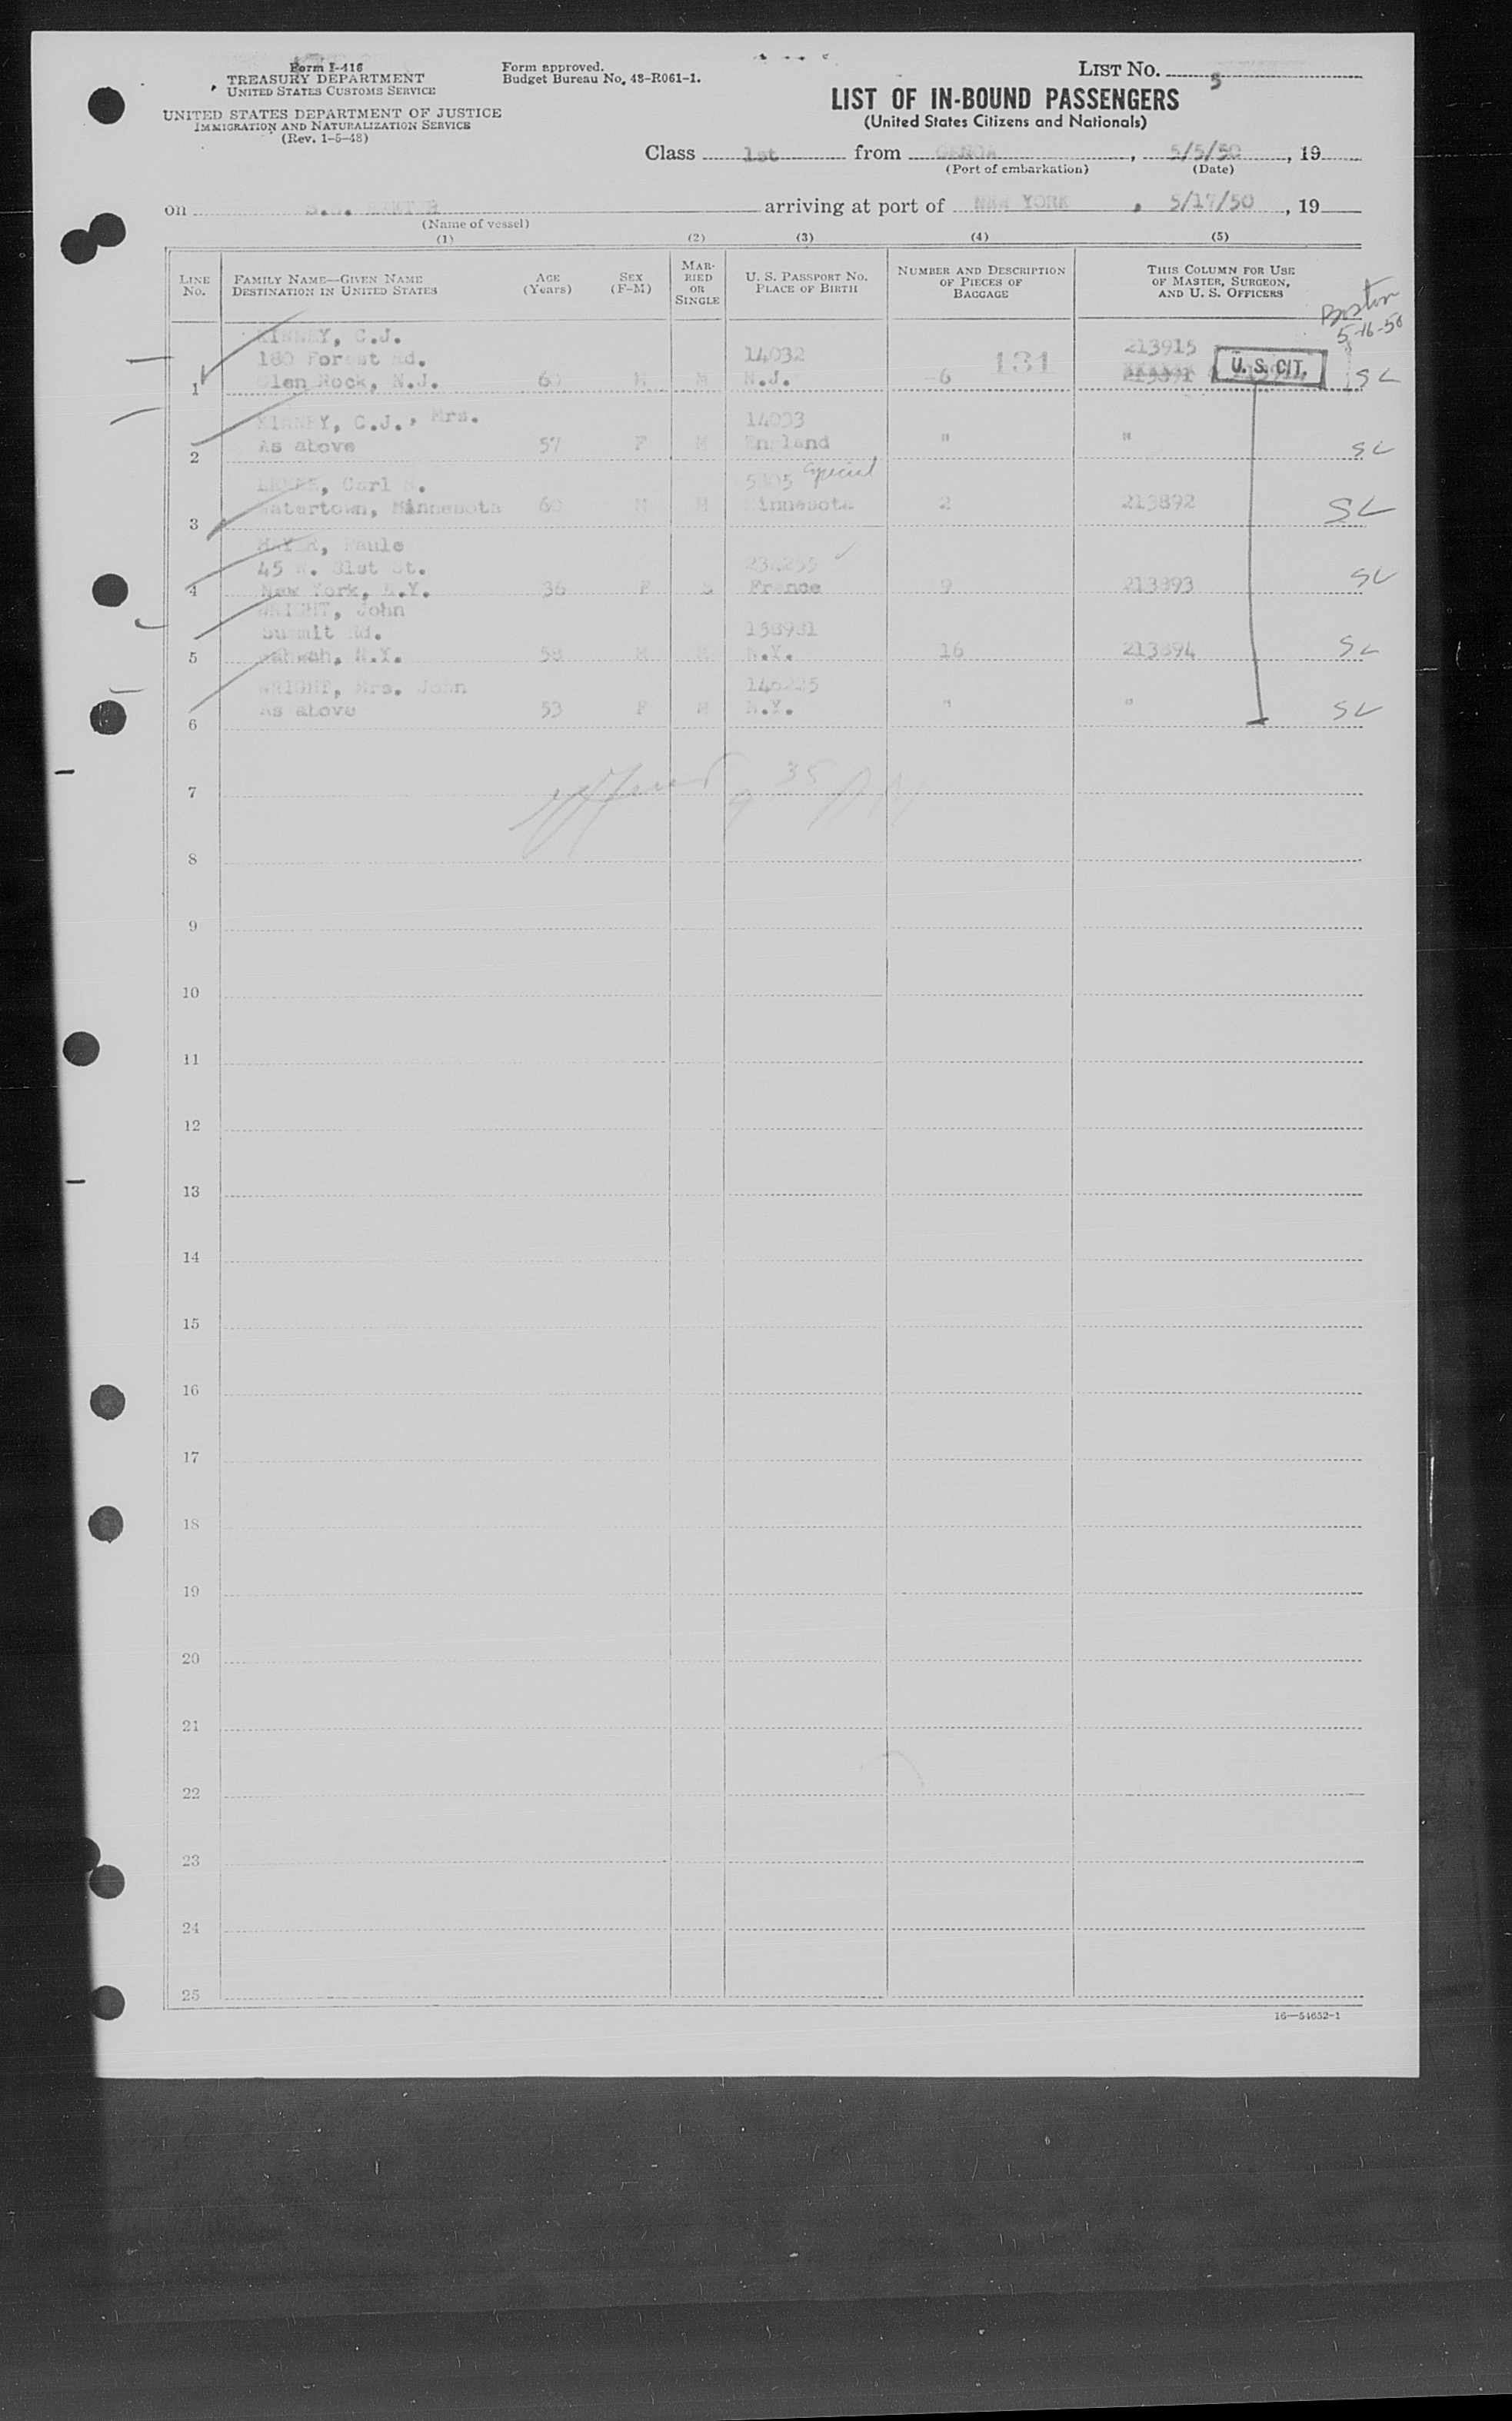 Form I-416
TREASURY DEPARTMENT
UNITED STATES CUSTOMS SERVICE
UNITED STATES DEPARTMENT OF JUSTICE
IMMIGRATION AND NATURALIZATION SERVICE
(Rev. 1-5-48)
Form approved.
Budget Bureau No. 43-R061-1.
LIST NO. 5
LIST OF IN-BOUND PASSENGERS
(United States Citizens and Nationals)
Class 1st from GENOA, 5/5/50, 19
(Port of embarkation) (Date)
on S.S. arriving at port of NEW YORK, 5/17/50, 19
(Name of vessel)
(1) (2) (3) (4) (5)
LINE NO. FAMILY NAME—GIVEN NAME DESTINATION IN UNITED STATES AGE (Years) SEX (F-M) MARRIED OR SINGLE U. S. PASSPORT NO. PLACE OF BIRTH NUMBER AND DESCRIPTION OF PIECES OF BAGGAGE THIS COLUMN FOR USE OF MASTER, SURGEON, AND U. S. OFFICERS
Boston
5-16-50
KINNEY, C.J.
180 Forest Rd. 14032 131 213915
1 Glen Rock, N.J. M M N.J. 6 213891 U. S. CIT. SL
KINNEY, C.J., Mrs. 14033
2 As above 57 F M England " " SL
Carl 5405 Special
3 Watertown, Minnesota 60 M M Minnesota 2 213892 SL
MAYER, Paule
45 W. 81st St.
4 New York, N.Y. 36 F S France 9 213893 SL
WRIGHT, John
Summit Rd.
5 Mahwah, N.Y. 58 M M N.Y. 16 213894 SL
WRIGHT, Mrs. John
6 As above 53 F M N.Y. " " SL
7 9 35 AM
8
9
10
11
12
13
14
15
16
17
18
19
20
21
22
23
24
25
16—54652-1